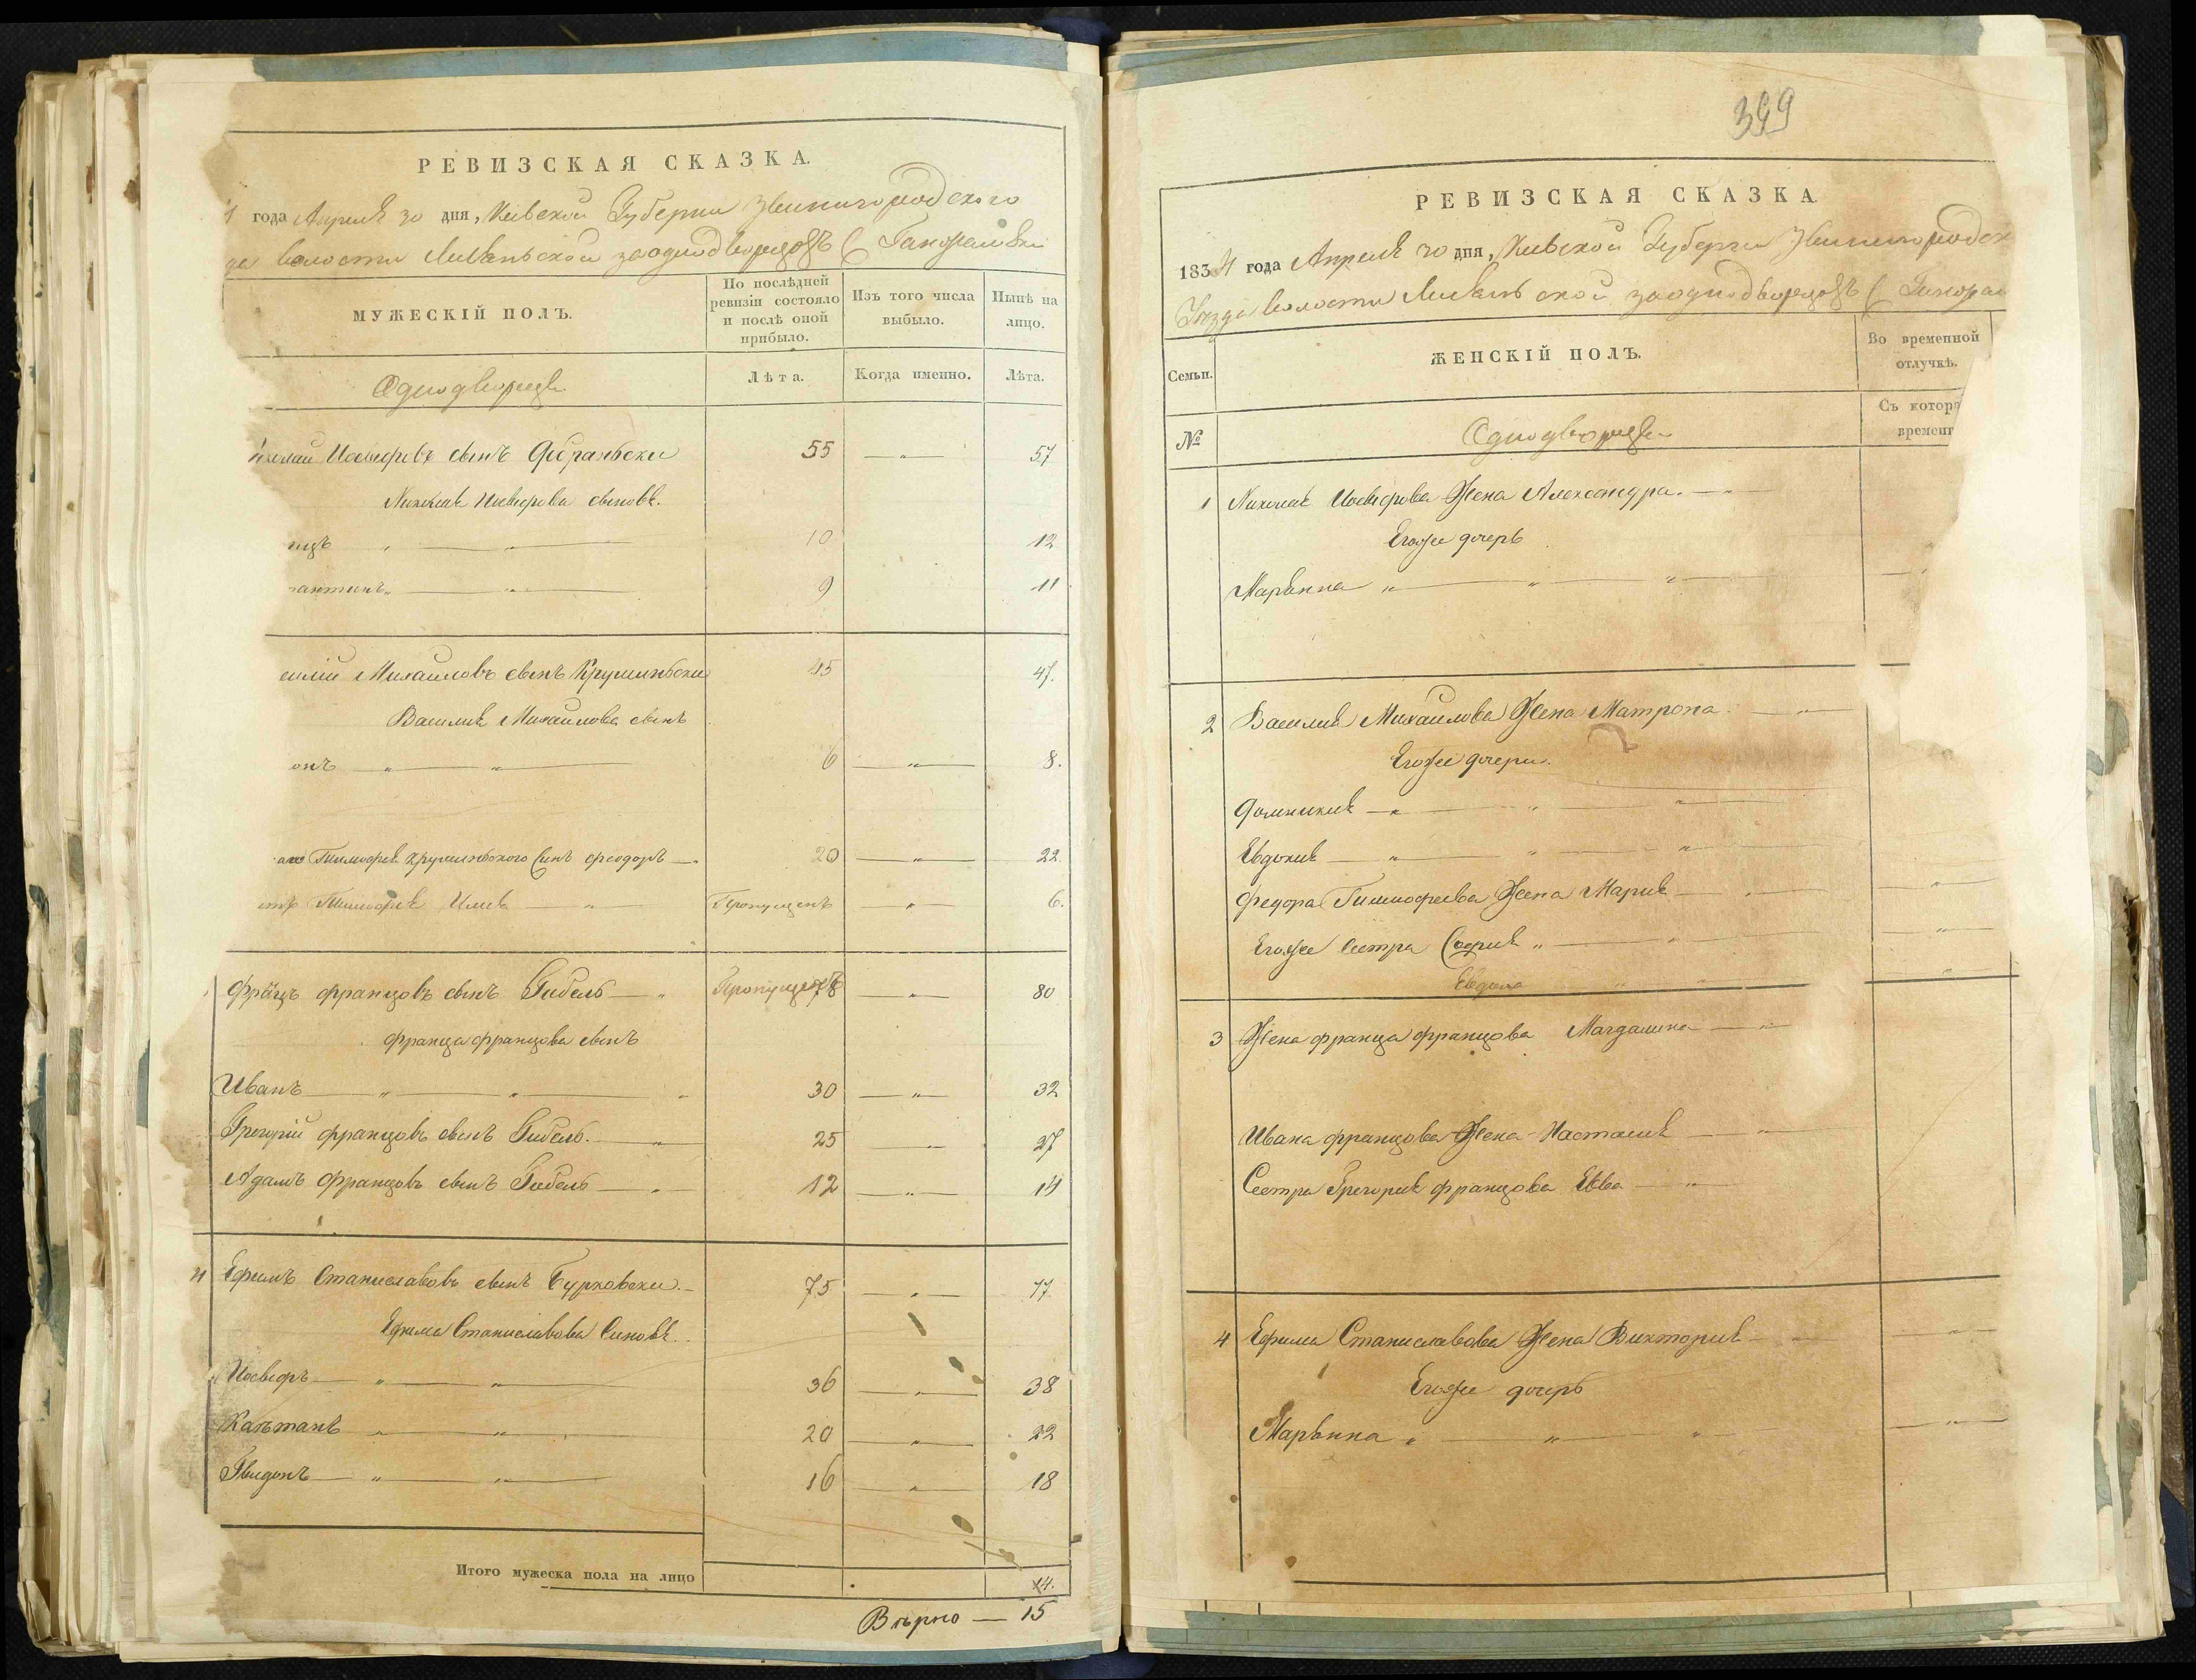 РЕВИЗСКАЯ СКАЗКА.
4 года Апреля 30 дня, Киевской Губернии Звенигородского
да волости Лисянской заоднодворцовъ С
МУЖЕСКІЙ ПОЛЪ.
По послѣдней ревизіи состояло и послѣ оной прибыло.
Изъ того числа выбыло.
Нынѣ на лицо.
Однодворцы
Лѣта.
Когда именно.
Лѣта.
колай Иосифовъ сынъ 55 — „ — 57
Николая Иосифова сыновья.
10 12
антинъ „ — „ — 9 11
силій Михайловъ сынъ 45 47.
Василия Михайлова сынъ
онъ — „ — „ — 6 — „ — 8.
Тимофея Сынъ Феодоръ — 20 — „ — 22.
Тимофея Илия — „ — Пропущенъ — „ — 6.
Францъ Францовъ сынъ Гибель — „ Пропущенъ 78 — „ — 80
Франца Францова сынъ
Иванъ — „ — „ — 30 — „ — 32
Григорій Францовъ сынъ Гибель. — „ — 25 — „ — 27
Адамъ Францовъ сынъ Гибель — „ — 12 — „ — 14
4 Ефимъ Станиславовъ сынъ Бурковски. — 75 — „ — 77
Ефима Станиславова Синовья.
Иосифъ — „ — „ — 36 — „ — 38
Каэтанъ „ — „ — 20 — „ — 22
Гвидонъ — „ — „ — 16 — „ — 18
Итого мужеска пола на лицо 14.
Вѣрно — 15
399
РЕВИЗСКАЯ СКАЗКА.
1834 года Апреля 30 дня, Киевской Губерніи Звенигородск
Уѣзда волости Лисянской заоднодворцовъ С
Семьи.
ЖЕНСКІЙ ПОЛЪ.
Во временной отлучкѣ.
№
Однодворцы
Съ котор
времени
1 Николая Иосифова Жена Александра. — „
Егоже дочерь
Марьянна „ — „ — „ —
2 Василия Михайлова Жена Матрона — „ —
Егоже дочери.
Домникия — „ — „ — „
Евдокия — „ — „ — „
Федора Тимофеева Жена Мария — „ — „ —
Егоже Сестра София „ — „ — „ —
Евдокия „ „ „
3 Жена Франца Францова Магдалина — „ —
Ивана Францова Жена Настасия — „ —
Сестра Григория Францова Евва — „ —
4 Ефима Станиславова Жена Виктория — „ — „ —
Егоже дочерь
Марьянна „ — „ — „ — „ —